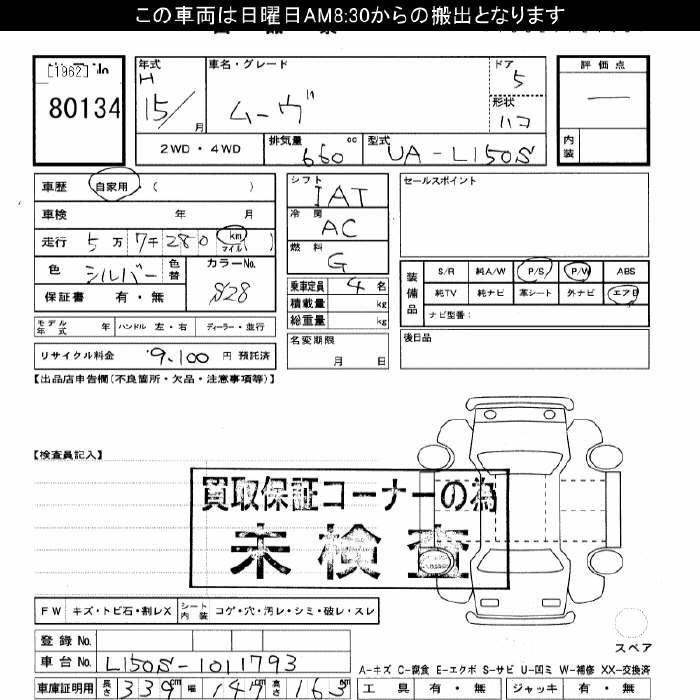 この車両は日曜日AM8:30からの搬出となります
[1962] No
80134
年式
H
15/
月
車名・グレード
ムーヴ
ドア
5
形状
ハコ
評価点
―
内装
2WD・4WD
排気量
660
cc
型式
UA-L150S
車歴
自家用
(　　　)
車検
年　月
走行
5万7千280
km
マイル
(　)
色
シルバー
色替
カラーNo.
S28
保証書
有・無
モデル年式
年
ハンドル
左・右
ディーラー・並行
リサイクル料金
9,100
円 預託済
シフト
IAT
冷房
AC
燃料
G
乗車定員
4
名
積載量
kg
総重量
kg
名変期限
月　日
セールスポイント
装備品
S/R
純A/W
P/S
P/W
ABS
純TV
純ナビ
革シート
外ナビ
エアB
ナビ型番:
後日品
【出品店申告欄(不良箇所・欠品・注意事項等)】
【検査員記入】
買取保証コーナーの為
未検査
FW
キズ・トビ石・割レX
シート内装
コゲ・穴・汚レ・シミ・破レ・スレ
登録No.
車台No.
L150S-1011793
スペア
A-キズ C-腐食 E-エクボ S-サビ U-凹ミ W-補修 XX-交換済
車庫証明用
長さ
339
cm
幅
147
cm
高さ
163
cm
工具
有・無
ジャッキ
有・無